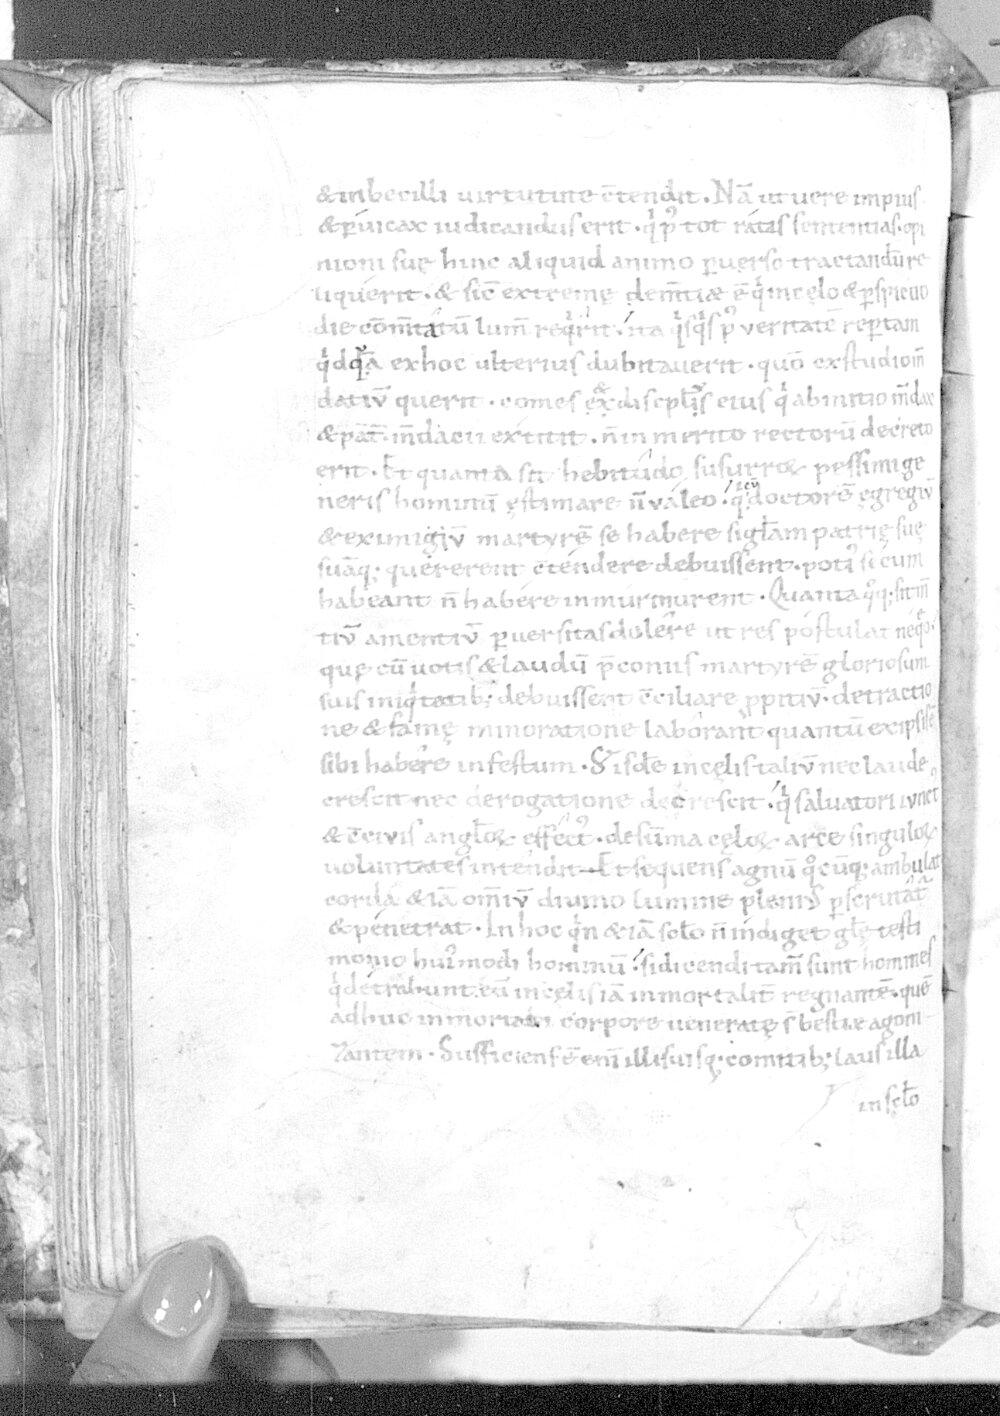 & inbecilli uirtutu᷒ite c̄tendit. Nā ut uere impius
& ꝑuicax iudicandus erit. q̍ p᷒ tot ratas sententias. opi
nioni suę hinc aliquid animo ꝑuerso tractand̄u re
liquerit. & sic̄ extremę dem̄tiæ ē q̍ in cęlo & ꝑspicuo
die lum̄ ita q̍sq̍s p᷒ veritatē reꝑtam
q̍dq̄ā ex hoc ulterius dubitauerit. quō ex studio m̄
datiū querit. comes eius q̍ ab initio m̄dax
& pat̄ m̄dacii extitit. n̄ inmerito rectorū decreto
erit. Et quanta sit hebitudo susurroꝝ pessimi ge
neris hominū ęstimare n̄ ualeo. doctorē egregiū
& eximiū martyrē se habere patrię suę
suāq; quererent c̄tendere debuissent. poti᷒ si cum
habeant n̄ habere inmurmurent. Quanta q̊q; sit m̄
tiū amentiū ꝑuersitas dolere ut res postulat
que cū uotis & laudū p̄coniis martyrē gloriosum
suis iniq̍tatib; debuissent c̄ciliare ꝓpitiū. detractio
ne & famę minoratione laborant quantū ex ipsis ē
sibi habere infestum. S; isdē in cęlis taliū nec laude
crescit nec derogatione decrescit. q̍ saluatori iunct᷒
& c̄ciuis angl̄oꝝ effect᷒. de sūma cęloꝝ arce singuloꝝ
uoluntates intendit. Et sequens agnū q̊cūq; ambulat
corda & iā om̄iū diuino lumine pleni᷒ ꝑscrutat̄
& penetrat. In hoc q̍n & iā sc̄lo n̄ indiget gl̄ę testi
monio hui᷒modi hominū. si dicendi tam̄ sunt homines
q̍ detrahunt eū in cęlis iā inmortalit̄ regnantē. quē
adhuc in mortali corpore uenerate s̄ bestiæ agoni
zantem. Sufficiens ē enī illi suisq; comitib; laus illa
in sęc̄lo